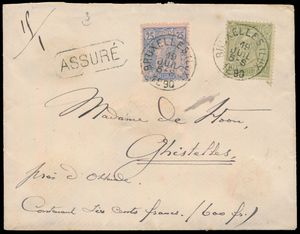 ASSURÉ
25
BRUXELLES
18
JUIN
1890
BRUXELLES
18
JUIN
1890
Madame de Hoon,
Ghistelles,
près d'Ostende.
Contenant six cents francs. (600 frs)